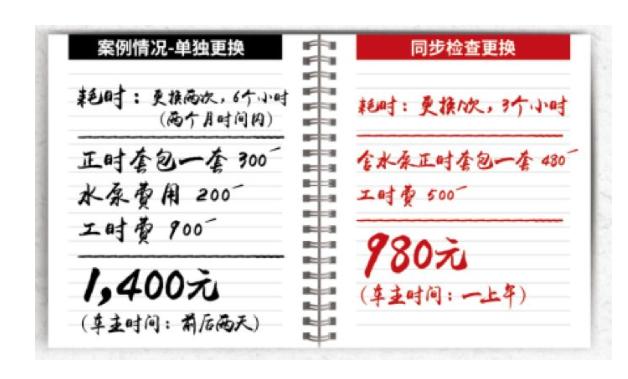 案例情况-单独更换
耗时：更换两次，6个小时
（两个月时间内）
正时套包一套 300-
水泵费用 200-
工时费 900-
1,400元
（车主时间：前后两天）
同步检查更换
耗时：更换1次，3个小时
含水泵正时套包一套 480-
工时费 500-
980元
（车主时间：一上午）